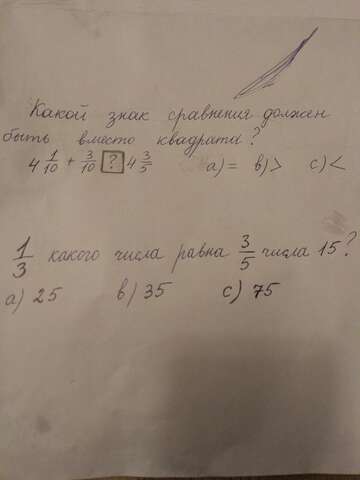 Какой знак сравнения должен
быть вместо квадрата?
4 1/10 + 3/10 ? 4 3/5 a) = b) > c) <
1/3 какого числа равна 3/5 числа 15?
a) 25 b) 35 c) 75